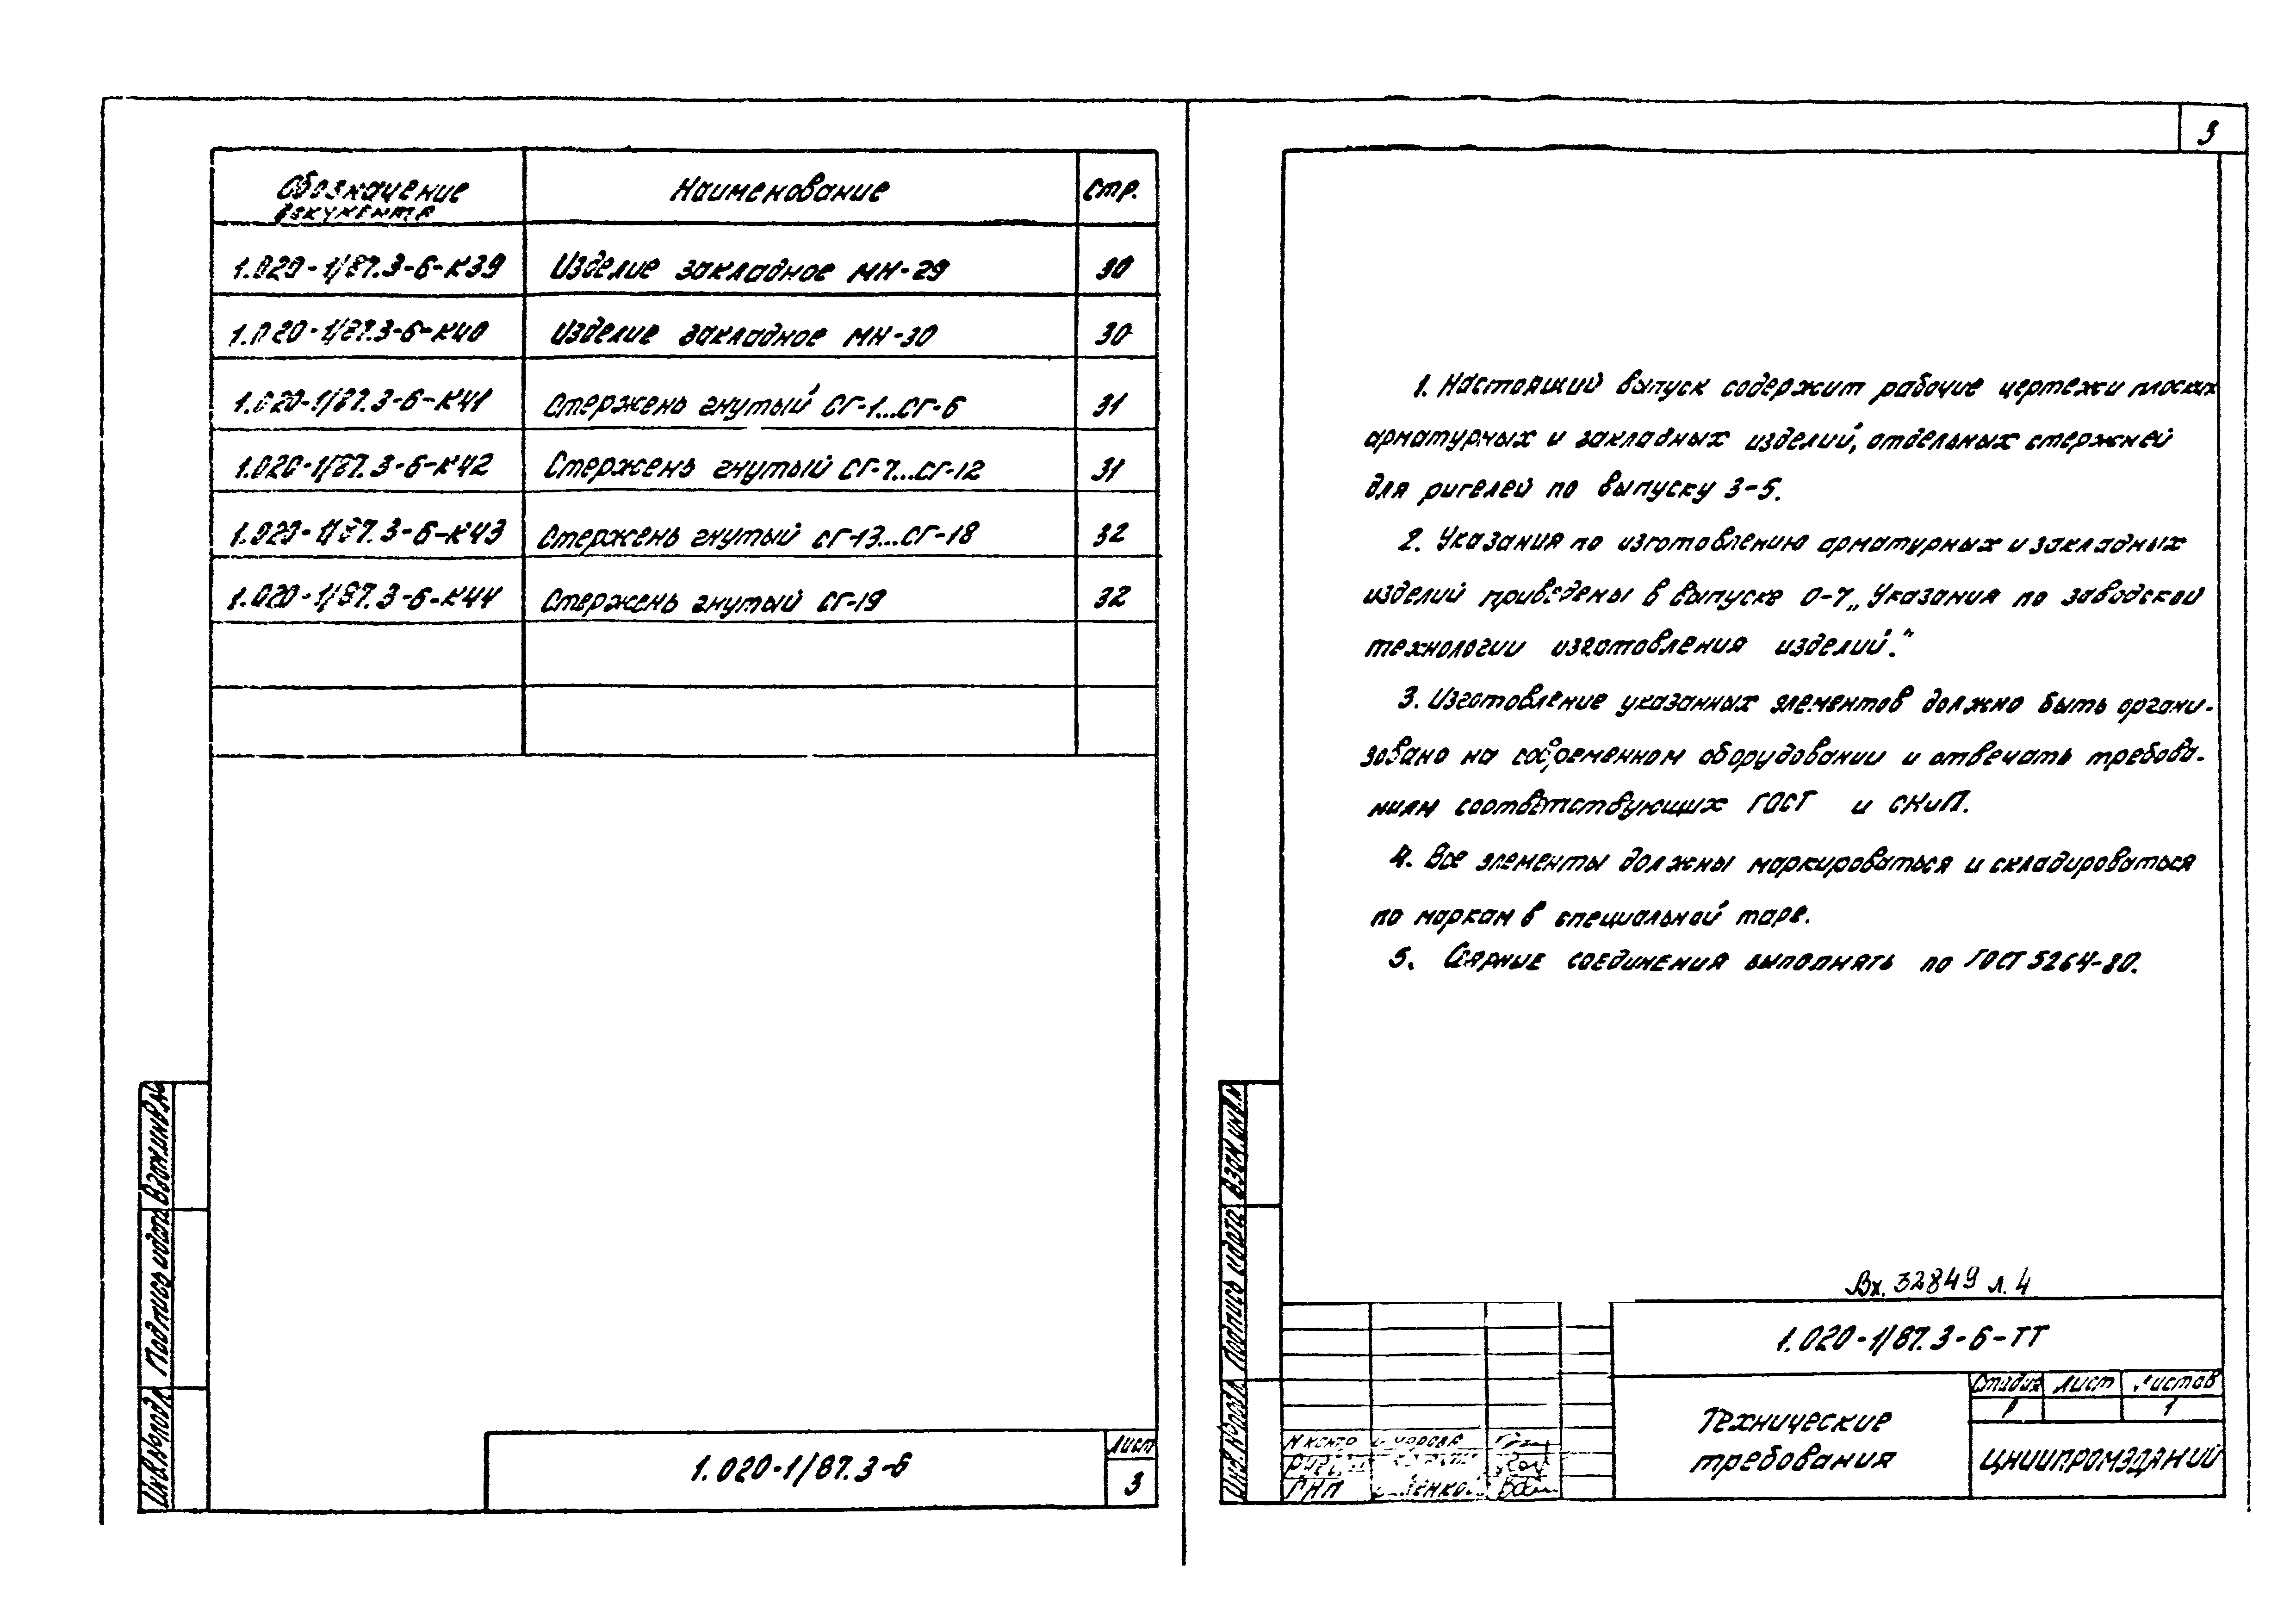 Обозначение документа Наименование Стр.
1.020-1/87.3-6-К39 Изделие закладное МН-29 30
1.020-1/87.3-6-К40 Изделие закладное МН-30 30
1.020-1/87.3-6-К41 Стержень гнутый СГ-1...СГ-6 31
1.020-1/87.3-6-К42 Стержень гнутый СГ-7...СГ-12 31
1.020-1/87.3-6-К43 Стержень гнутый СГ-13...СГ-18 32
1.020-1/87.3-6-К44 Стержень гнутый СГ-19 32
Взам.инв.№
Подпись и дата
Инв.№ подл.
1.020-1/87.3-6
Лист
3
3
1. Настоящий выпуск содержит рабочие чертежи плоских
арматурных и закладных изделий, отдельных стержней
для ригелей по выпуску 3-5.
2. Указания по изготовлению арматурных и закладных
изделий приведены в выпуске 0-7 „Указания по заводской
технологии изготовления изделий."
3. Изготовление указанных элементов должно быть органи-
зовано на современном оборудовании и отвечать требова-
ниям соответствующих ГОСТ и СНиП.
4. Все элементы должны маркироваться и складироваться
по маркам в специальной таре.
5. Сварные соединения выполнять по ГОСТ 5264-80.
Взам.инв.№
Подпись и дата
Инв.№ подл.
Вх. 32849 л. 4
1.020-1/87.3-6-ТТ
Н контр
ГИП
Технические
требования
Стадия Лист Листов
Р 1
ЦНИИПРОМЗДАНИЙ